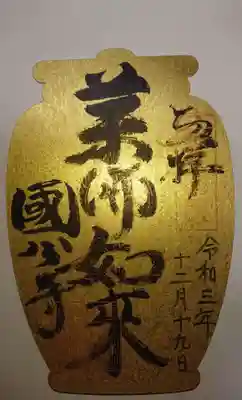 奉拝
令和三年
十二月十九日
薬師如来
國分寺